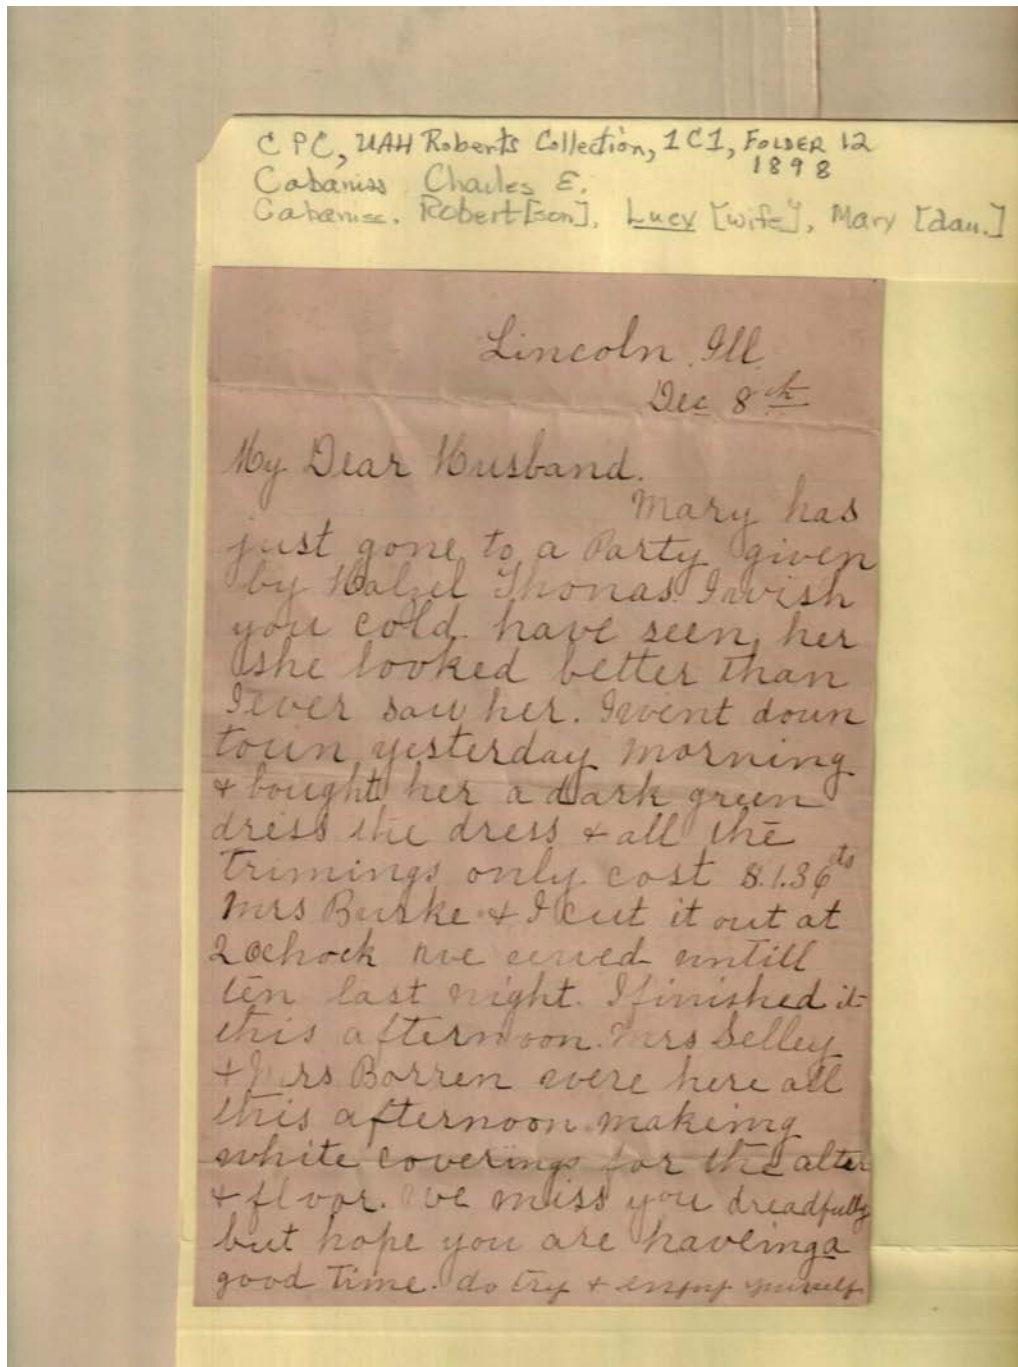 C P C, UAH Roberts Collection, 1C1, FOLDER 12
1898
Cabaniss Charles E.
Cabaniss. Robert [son], Lucy [wife], Mary [dau.]
Lincoln. Ill.
Dec 8th
My Dear Husband.
Mary has
just gone to a Party given
by Halzel Thonas. I wish
you cold have seen her
she looked better than
I ever saw her. I went down
town yesterday morning
& bought her a dark green
dress the dress & all the
trimings only cost $.1.36cts
Mrs Burke & I cut it out at
2 ochock we sewed untill
ten last night. I finished it
this afternoon. Mrs Selley
& Mrs Borren were here all
this afternoon makeing
white coverings for the alter
& floor. We miss you dreadfully
but hope you are haveing a
good Time. do try & enjoy yourself